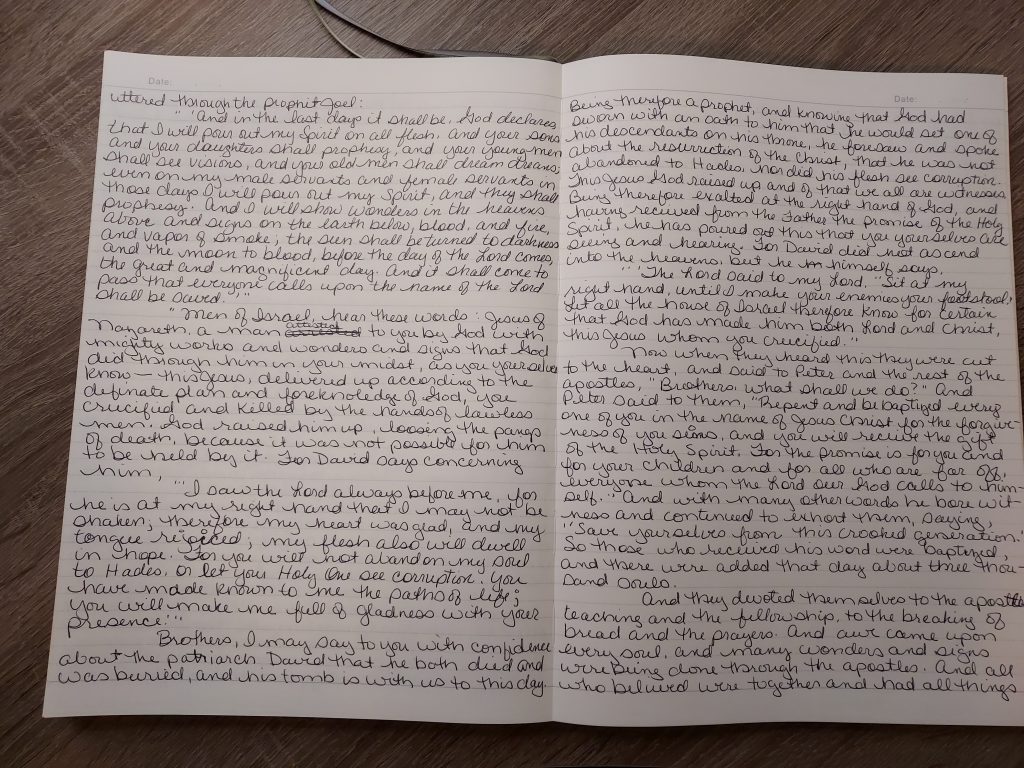 Date:
uttered through the prophet Joel:
"'And in the last days it shall be, God declares,
that I will pour out my Spirit on all flesh, and your sons
and your daughters shall prophesy, and your young men
shall see visions, and your old men shall dream dreams;
even on my male servants and female servants in
those days I will pour out my Spirit, and they shall
prophesy. And I will show wonders in the heavens
above and signs on the earth below, blood, and fire,
and vapor of smoke; the sun shall be turned to darkness
and the moon to blood, before the day of the Lord comes,
the great and magnificent day. And it shall come to
pass that everyone calls upon the name of the Lord
shall be saved.'"
"Men of Israel, hear these words: Jesus of
Nazareth, a man attested to you by God with
mighty works and wonders and signs that God
did through him in your midst, as you yourselves
know — this Jesus, delivered up according to the
definate plan and foreknoledge of God, you
crucified and killed by the hands of lawless
men. God raised him up, loosing the pangs
of death, because it was not possible for him
to be held by it. For David says concerning
him,
"'I saw the Lord always before me, for
he is at my right hand that I may not be
shaken; therefore my heart was glad, and my
tongue rejoiced; my flesh also will dwell
in hope. For you will not abandon my soul
to Hades, or let your Holy One see corruption. You
have made known to me the paths of life;
you will make me full of gladness with your
presence.'"
Brothers, I may say to you with confidence
about the patriarch David that he both died and
was buried, and his tomb is with us to this day.
Date:
Being therefore a prophet, and knowing that God had
sworn with an oath to him that he would set one of
his descendants on his throne, he foresaw and spoke
about the resurrection of the Christ, that he was not
abandoned to Hades, nor did his flesh see corruption.
This Jesus God raised up and of that we all are witnesses.
Being therefore exalted at the right hand of God, and
having received from the Father the promise of the Holy
Spirit, he has poured out this that you yourselves are
seeing and hearing. For David did not ascend
into the heavens, but he himself says,
"'The Lord said to my Lord, "Sit at my
right hand, until I make your enemies your footstool.'
Let all the house of Israel therefore know for certain
that God has made him both Lord and Christ,
this Jesus whom you crucified."
Now when they heard this they were cut
to the heart, and said to Peter and the rest of the
apostles, "Brothers, what shall we do?" And
Peter said to them, "Repent and be baptized every
one of you in the name of Jesus Christ for the forgive-
ness of you sins, and you will receive the gift
of the Holy Spirit. For the promise is for you and
for your children and for all who are far off,
everyone whom the Lord our God calls to him-
self." And with many other words he bore wit-
ness and continued to exhort them, saying,
"Save yourselves from this crooked generation."
So those who received his word were baptized,
and there were added that day about three thou-
sand souls.
And they devoted themselves to the apostles
teaching and the fellowship, to the breaking of
bread and the prayers. And awe came upon
every soul, and many wonders and signs
were being done through the apostles. And all
who believed were together and had all things